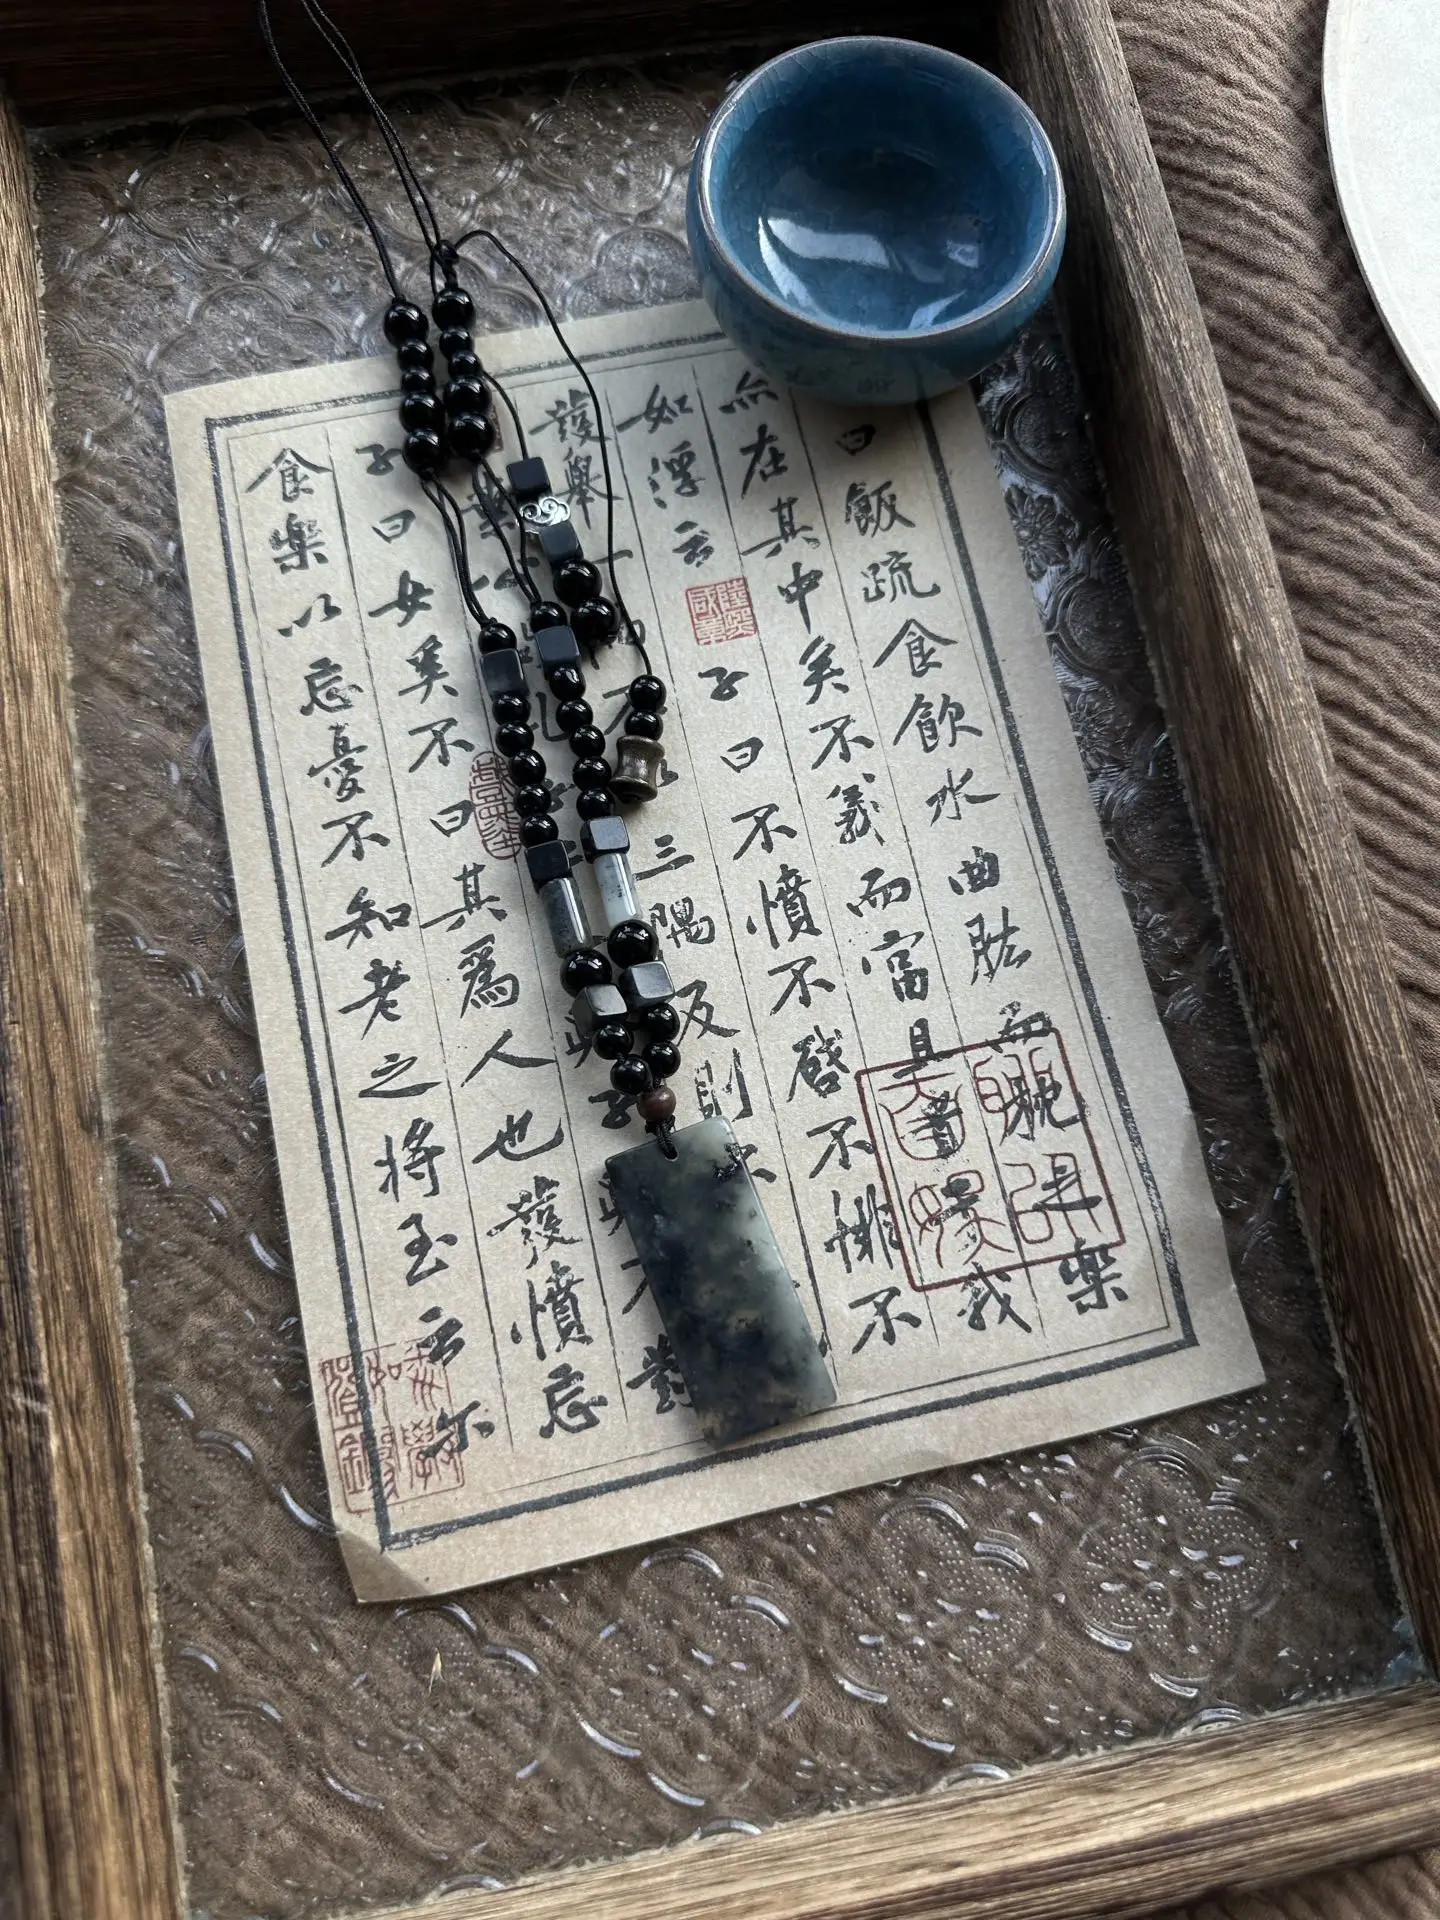 曰飯疏食飲水曲肱而枕之樂
亦在其中矣不義而富且貴於我
如浮云 子曰不憤不啓不悱不
發舉一不三隅反則不
公孔子對
子曰女奚不曰其爲人也發憤忘
食樂以忘憂不知老之将至云尔